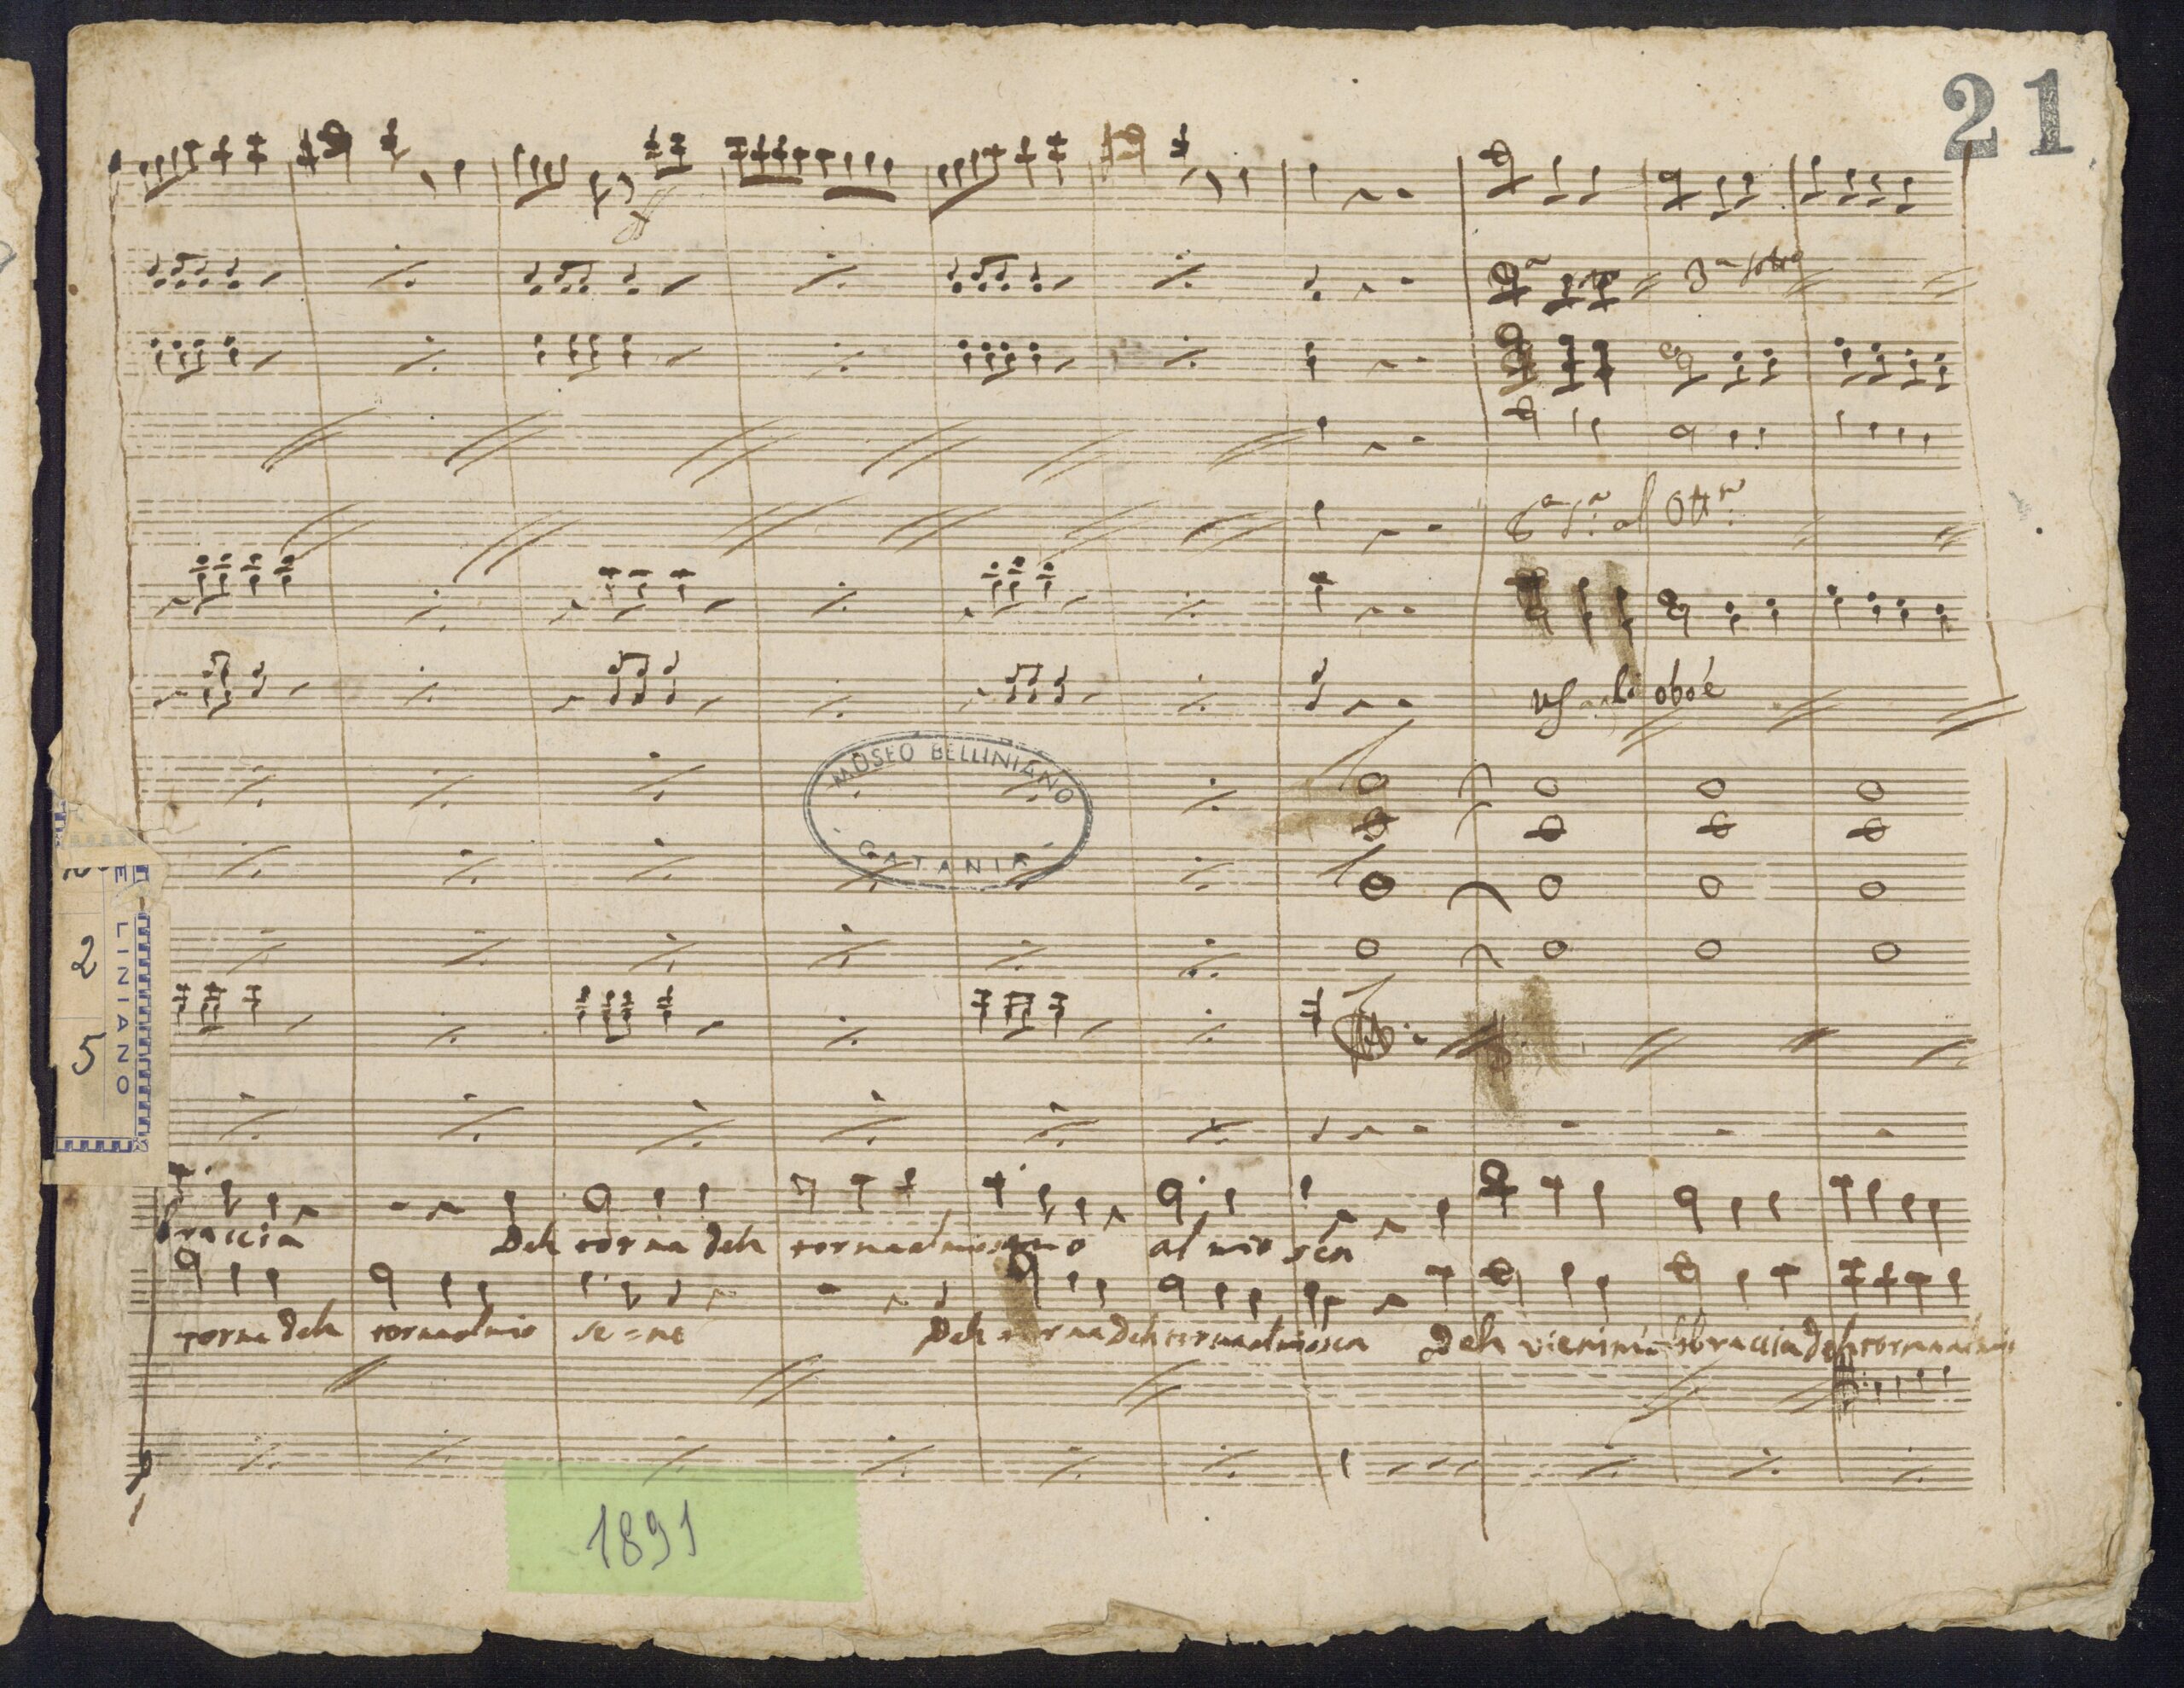 21
3ª sotto
6ª 1ª al Ottª
us li oboé
MUSEO BELLINIANO
CATANIA
LINIANO
2
5
braccia Deh torna deh torna al mio seno al mio sen
torna deh torna al mio se=no Deh torna Deh torna al mio sen Deh vieni mi abbraccia deh torna al mio
1891